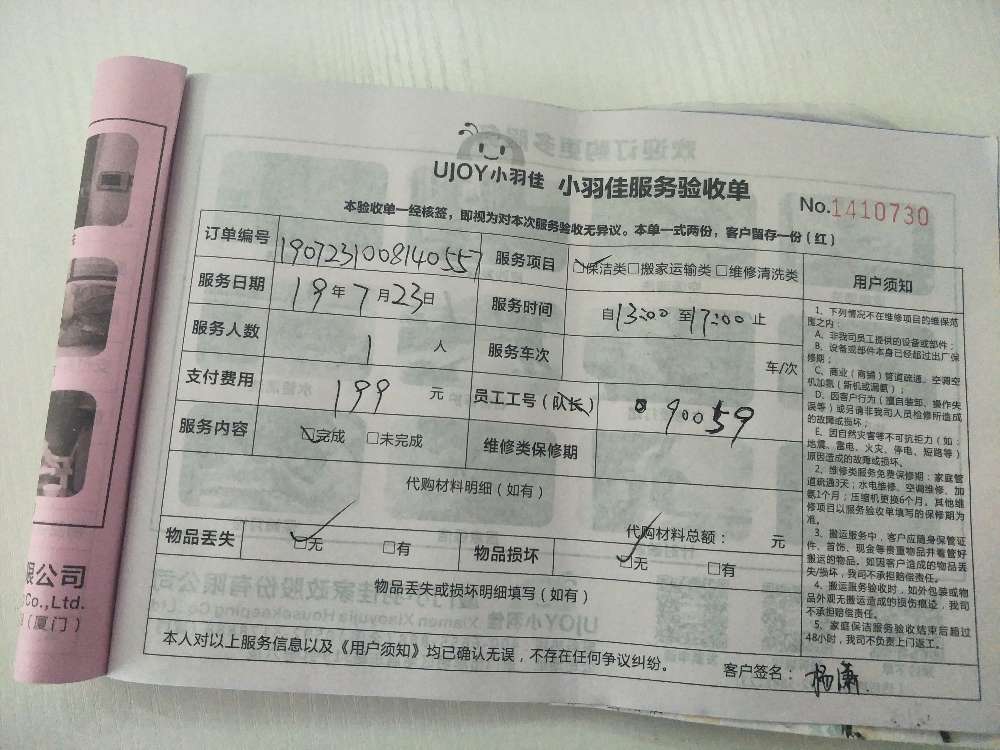 UJOY小羽佳 小羽佳服务验收单
No.1410730
本验收单一经核签，即视为对本次服务验收无异议。本单一式两份，客户留存一份（红）
订单编号 1907231008140557 服务项目 ☑保洁类□搬家运输类□维修清洗类
服务日期 19年7月23日 服务时间 自13:00至17:00止
服务人数 1人 服务车次 车/次
支付费用 199元 员工工号（队长） 090059
服务内容 ☑完成 □未完成 维修类保修期
代购材料明细（如有）
代购材料总额： 元
物品丢失 ☑无 □有 物品损坏 ☑无 □有
物品丢失或损坏明细填写（如有）
本人对以上服务信息以及《用户须知》均已确认无误，不存在任何争议纠纷。
客户签名：杨潇
用户须知
1、下列情况不在维修项目的维保范
围之内：
A、非我司员工提供的设备或部件；
B、设备或部件本身已经超过出厂保
修期；
C、商业（商铺）管道疏通、空调空
机加氨（新机或漏氨）；
D、因客户行为（擅自装卸、操作失
误等）或另请非我司人员检修所造成
的故障或损坏；
E、因自然灾害等不可抗拒力（如：
地震、雷电、火灾、停电、短路等）
原因造成的故障或损坏。
2、维修类服务免费保修期：家庭管
道疏通3天；水电维修、空调维修、加
氨1个月；压缩机更换6个月。其他维
修项目以服务验收单填写的保修期为
准。
3、搬运服务中，客户应随身保管证
件、首饰、现金等贵重物品并看管好
搬运的物品。如因客户造成的物品丢
失/损坏，我司不承担赔偿责任。
4、搬运服务验收时，如外包装或物
品外观无搬运造成的损伤痕迹，我司
不承担赔偿责任。
5、家庭保洁服务验收结束后超过
48小时，我司不负责上门返工。
限公司
Co.,Ltd.
（厦门）
欢迎订购更多服务